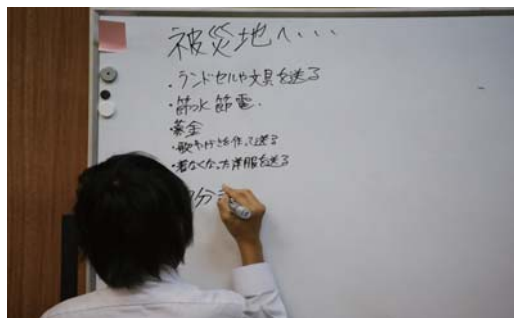 被災地へ・・・
・ランドセルや文具を送る
・節水 節電.
・募金
・歌や
・着なくなった洋服を送る
分